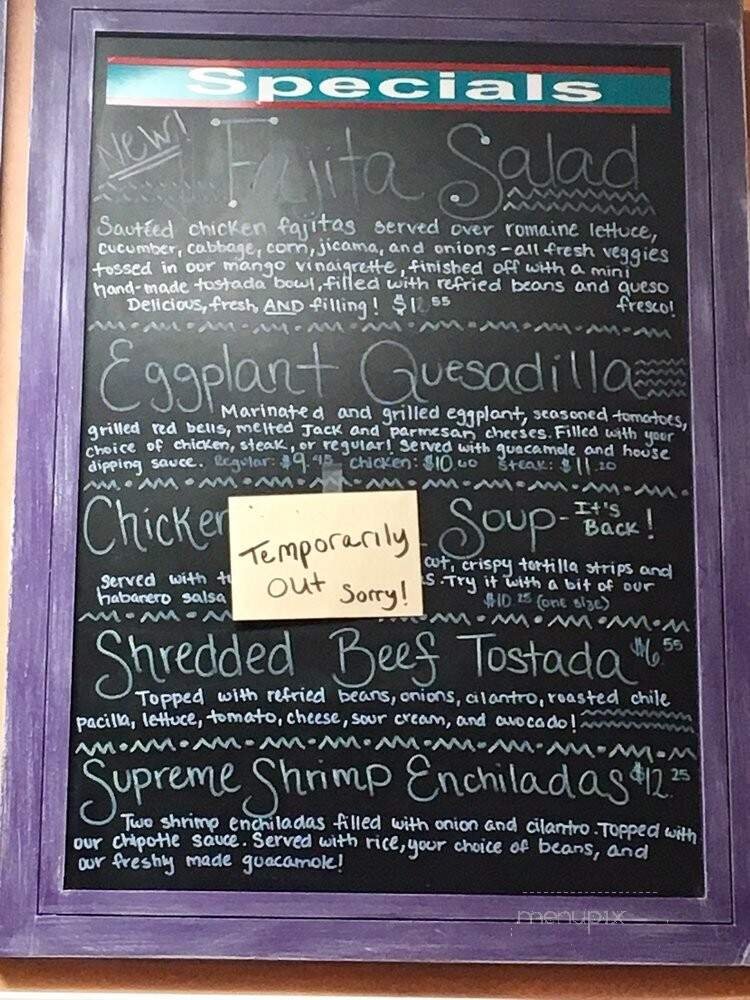 Specials
New! Fajita Salad
Sautéed chicken fajitas served over romaine lettuce,
cucumber, cabbage, corn, jicama, and onions - all fresh veggies
tossed in our mango vinaigrette, finished off with a mini
hand-made tostada bowl, filled with refried beans and queso
Delicious, fresh, AND filling! fresco!
Eggplant Quesadilla
Marinated and grilled eggplant, seasoned tomatoes,
grilled red bells, melted Jack and parmesan cheeses. Filled with your
choice of chicken, steak, or regular! Served with guacamole and house
dipping sauce. Regular: $9.45 chicken: $10.60 Steak: $11.20
Chicken Soup - It's
Back!
Temporarily
out Sorry!
crispy tortilla strips and
served with Try it with a bit of our
habanero salsa $10.25 (one size)
Shredded Beef Tostada $6.55
Topped with refried beans, onions, cilantro, roasted chile
pacilla, lettuce, tomato, cheese, sour cream, and avocado!
Supreme Shrimp Enchiladas $12.25
Two shrimp enchiladas filled with onion and cilantro. Topped with
our chipotle sauce. Served with rice, your choice of beans, and
our freshly made guacamole!
menupix